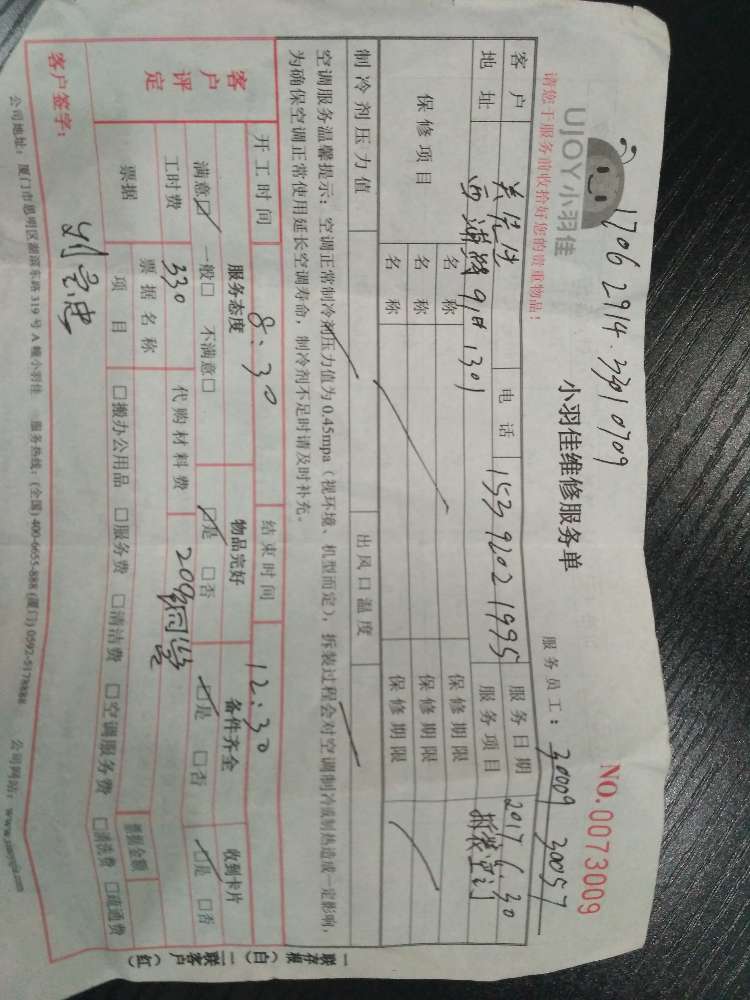 1706 2914 · 3301 0709
UJOY小羽佳
小羽佳维修服务单
NO.0073009
请您于服务前收拾好您的贵重物品!
服务员工: 30009 30057
客户
电话 153 9202 1995
服务日期 2017.6.30
地址
1301
服务项目 拆装空调
保修项目
名称 保修期限
名称 保修期限
名称 保修期限
制冷剂压力值 出风口温度
空调服务温馨提示:空调正常制冷剂压力值为0.45mpa(视环境、机型而定),拆装过程会对空调制冷或制热造成一定影响,
为确保空调正常使用延长空调寿命,制冷剂不足时请及时补充。
开工时间 8:30 结束时间 12:30
客户评定
服务态度 物品完好 备件齐全 收到卡片
满意☑ 一般□ 不满意□ ☑是 □否 ☑是 □否 ☑是 □否
工时费 330 代购材料费 209
票据 票据名称 票据金额
项目 □搬办公用品 □服务费 □清洁费 □空调服务费 □清洗费 □疏通费
客户签字:
公司地址:厦门市思明区湖滨东路319号A幢小羽佳 服务热线:(全国)400-6655-888 (厦门)0592-5178888 公司网站:
一联存根(白) 一联客户(红)